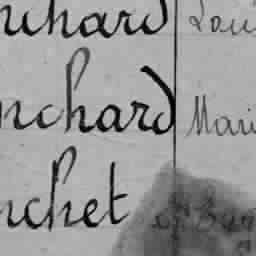 nchard Loui
nchard Mari
nchet